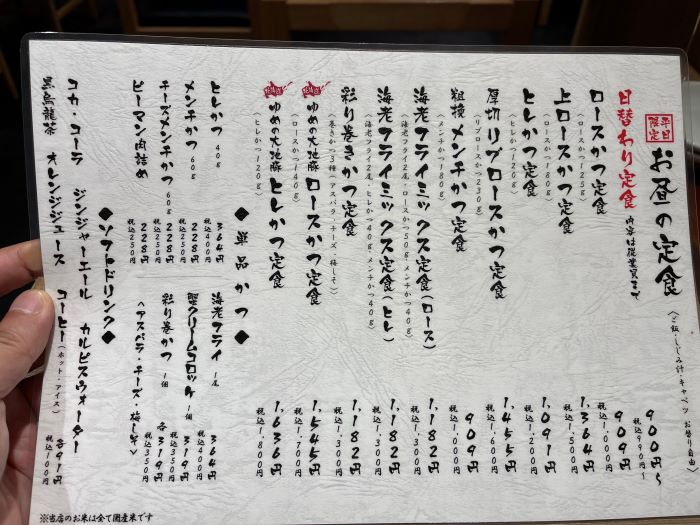 平日限定 お昼の定食 (ご飯・しじみ汁・キャベツ お替り自由)
日替わり定食 内容は従業員まで 900円~
税込990円~
ロースかつ定食 909円
(ロースかつ125g) 税込1,000円
上ロースかつ定食 1,364円
(ロースかつ180g) 税込1,500円
ヒレかつ定食 1,091円
(ヒレかつ120g) 税込1,200円
厚切リブロースかつ定食 1,455円
(リブロースかつ230g) 税込1,600円
粗挽メンチかつ定食 909円
(メンチかつ180g) 税込1,000円
海老フライミックス定食(ロース) 1,182円
(海老フライ2尾・ロースかつ50g・メンチかつ40g) 税込1,300円
海老フライミックス定食(ヒレ) 1,182円
(海老フライ2尾、ヒレかつ40g、メンチかつ40g) 税込1,300円
彩り巻きかつ定食 1,182円
(巻きかつ3種(アスパラ・チーズ・梅しそ) 税込1,300円
北海道 ゆめの大地豚ロースかつ定食 1,545円
(ロースかつ140g) 税込1,700円
北海道 ゆめの大地豚ヒレかつ定食 1,636円
(ヒレかつ120g) 税込1,800円
◆単品かつ◆
ヒレかつ 40g 364円
税込400円
メンチかつ 60g 228円
税込250円
チーズメンチかつ 60g 228円
税込250円
ピーマン肉詰め 228円
税込250円
海老フライ 1尾 364円
税込400円
蟹クリームコロッケ 1個 319円
税込350円
彩り巻かつ 1個 各319円
<アスパラ・チーズ・梅しそ> 税込350円
◆ソフトドリンク◆
コカ・コーラ ジンジャーエール カルピスウォーター
黒烏龍茶 オレンジジュース コーヒー(ホット・アイス) 各91円
税込100円
※当店のお米は全て国産米です